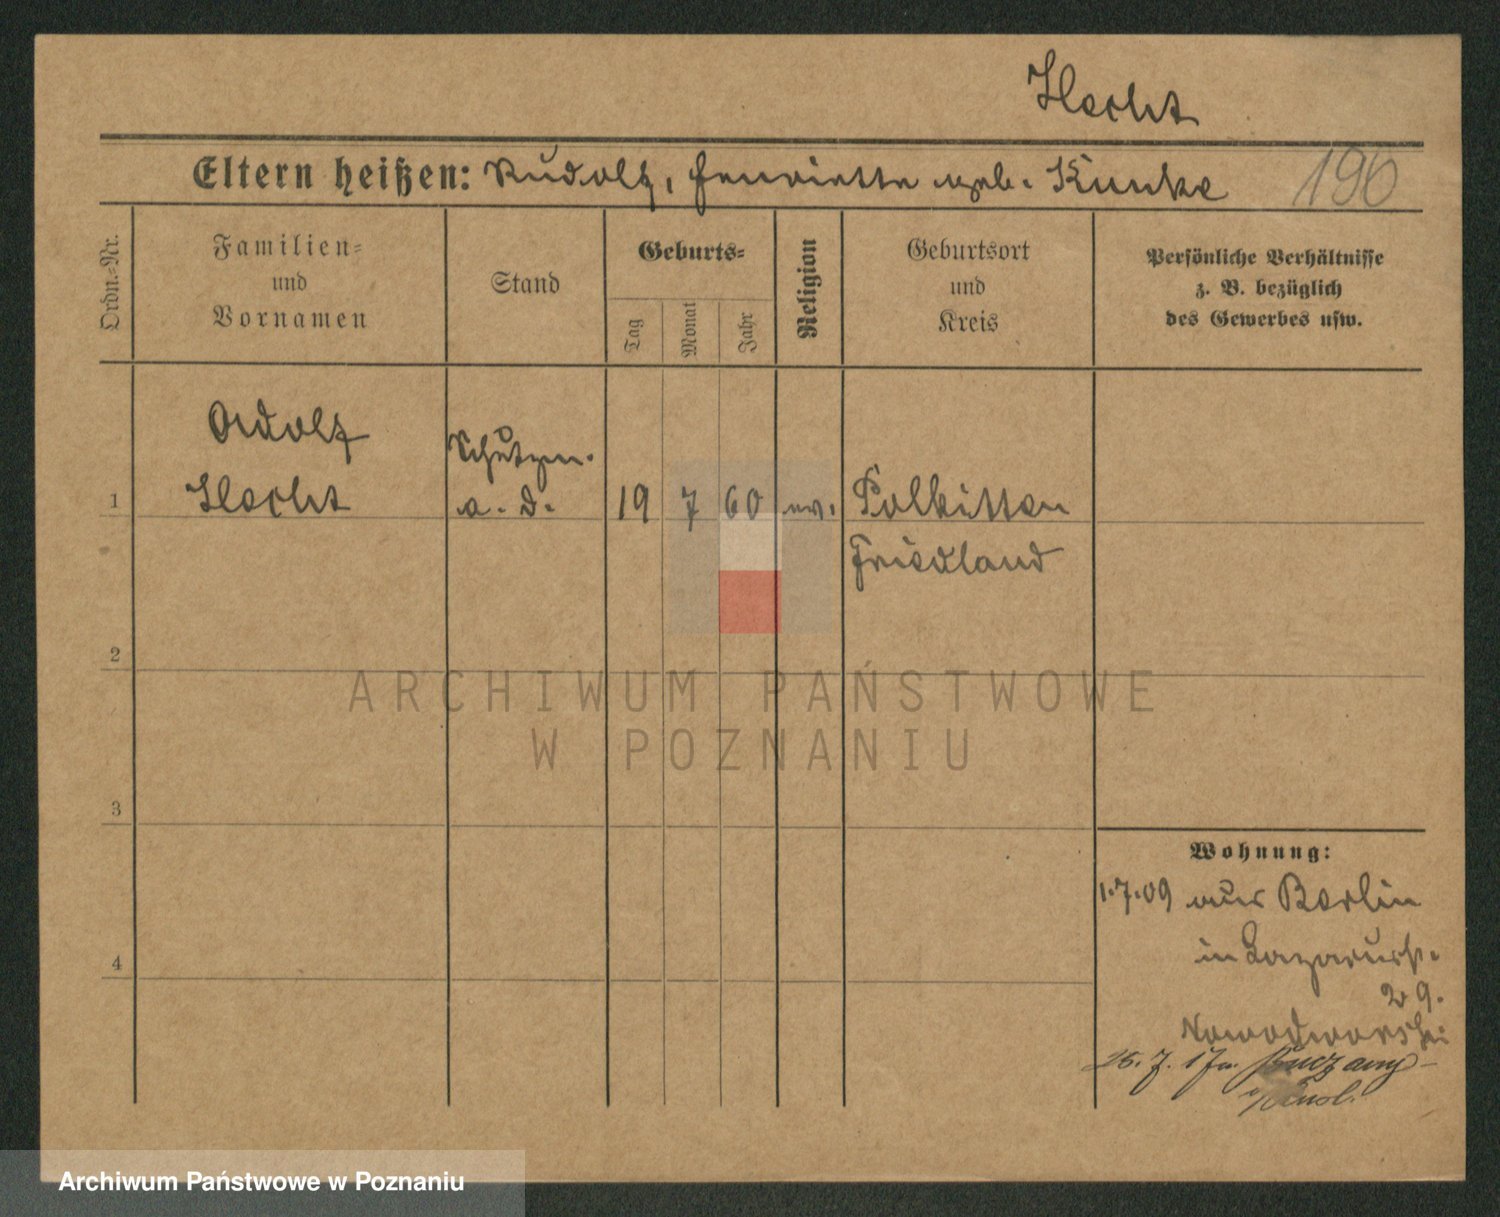 Hecht
Eltern heißen: Rudolf, Henriette geb. Kunke
196
Ordn.-Nr.
Familien-
und
Vornamen
Stand
Geburts-
Tag
Monat
Jahr
Religion
Geburtsort
und
Kreis
Persönliche Verhältnisse
z. B. bezüglich
des Gewerbes usw.
Adolf
Schutzm.
1 Hecht a. D. 19 7 60 ev. Palkitten
Friedland
2
ARCHIWUM PAŃSTWOWE
W POZNANIU
3
Wohnung:
1.7.09 aus Berlin
4
in Lazarusstr.
29.
Nowodworski
Archiwum Państwowe w Poznaniu